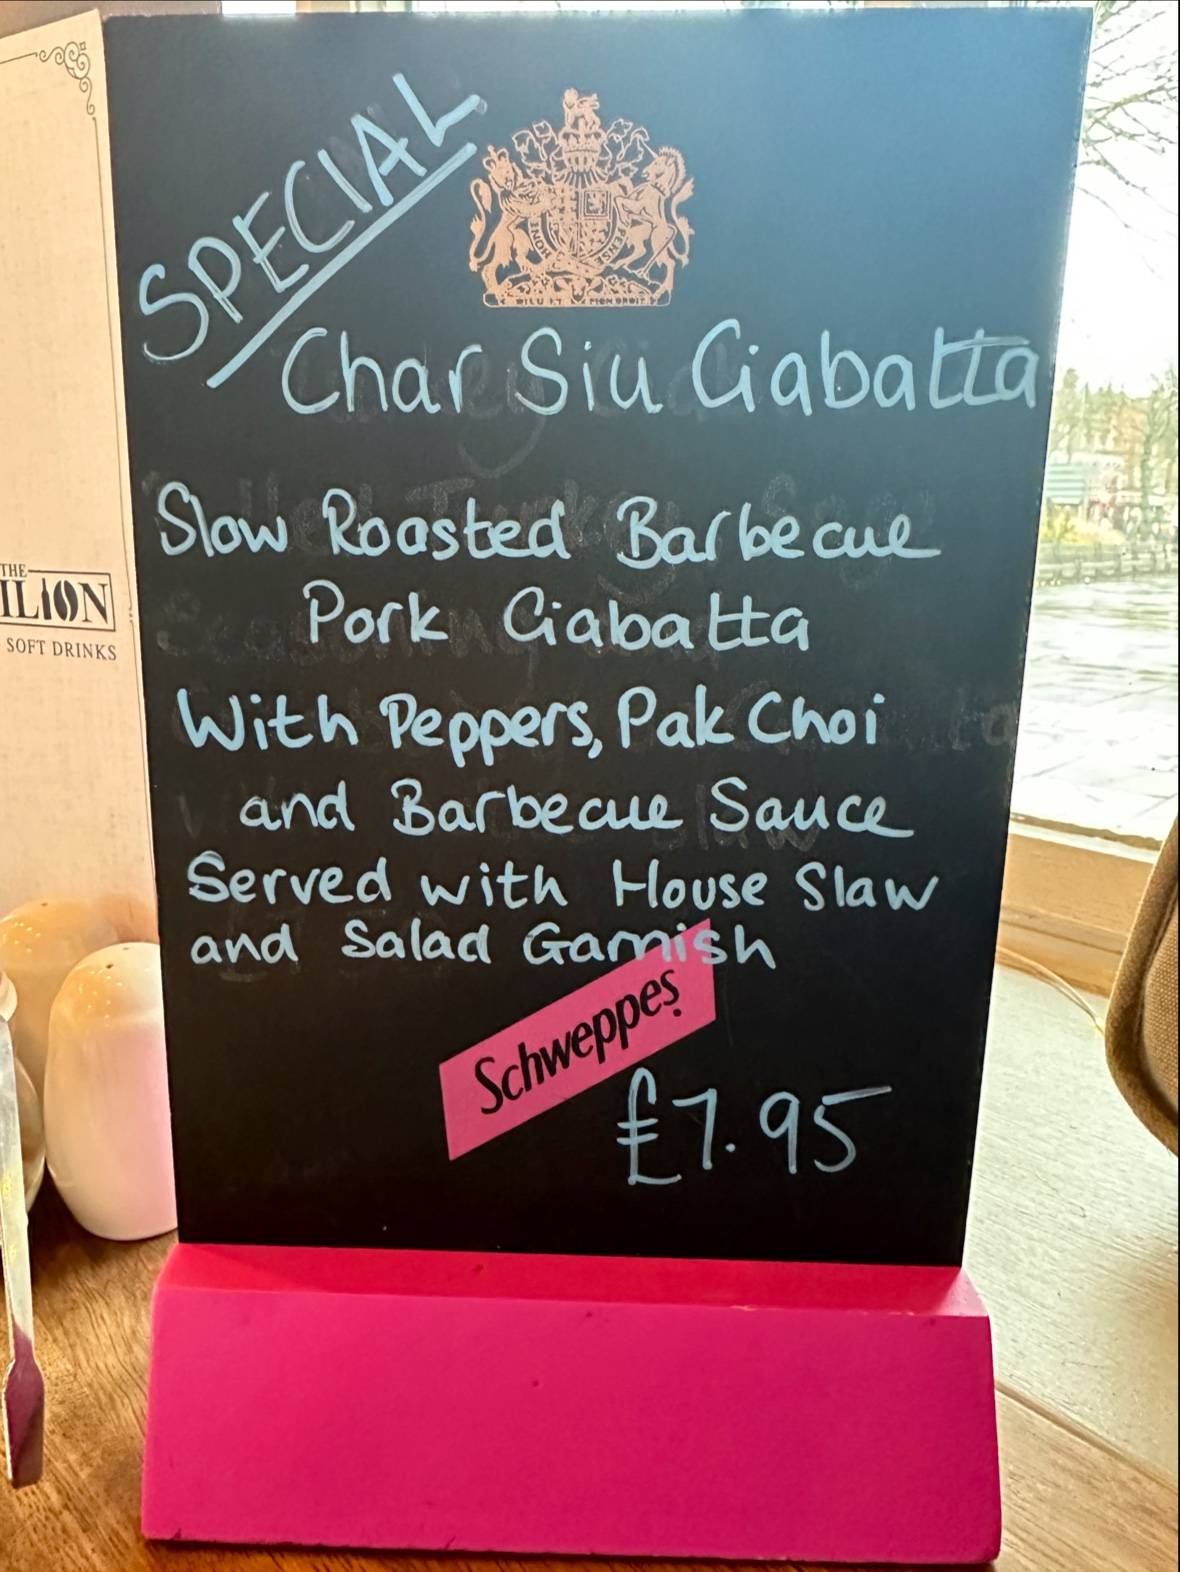 SPECIAL
Char Siu Ciabatta
Slow Roasted Barbecue
Pork Ciabatta
With Peppers, Pak Choi
and Barbecue Sauce
Served with House Slaw
and Salad Garnish
Schweppes
£7.95
THE
ILION
SOFT DRINKS